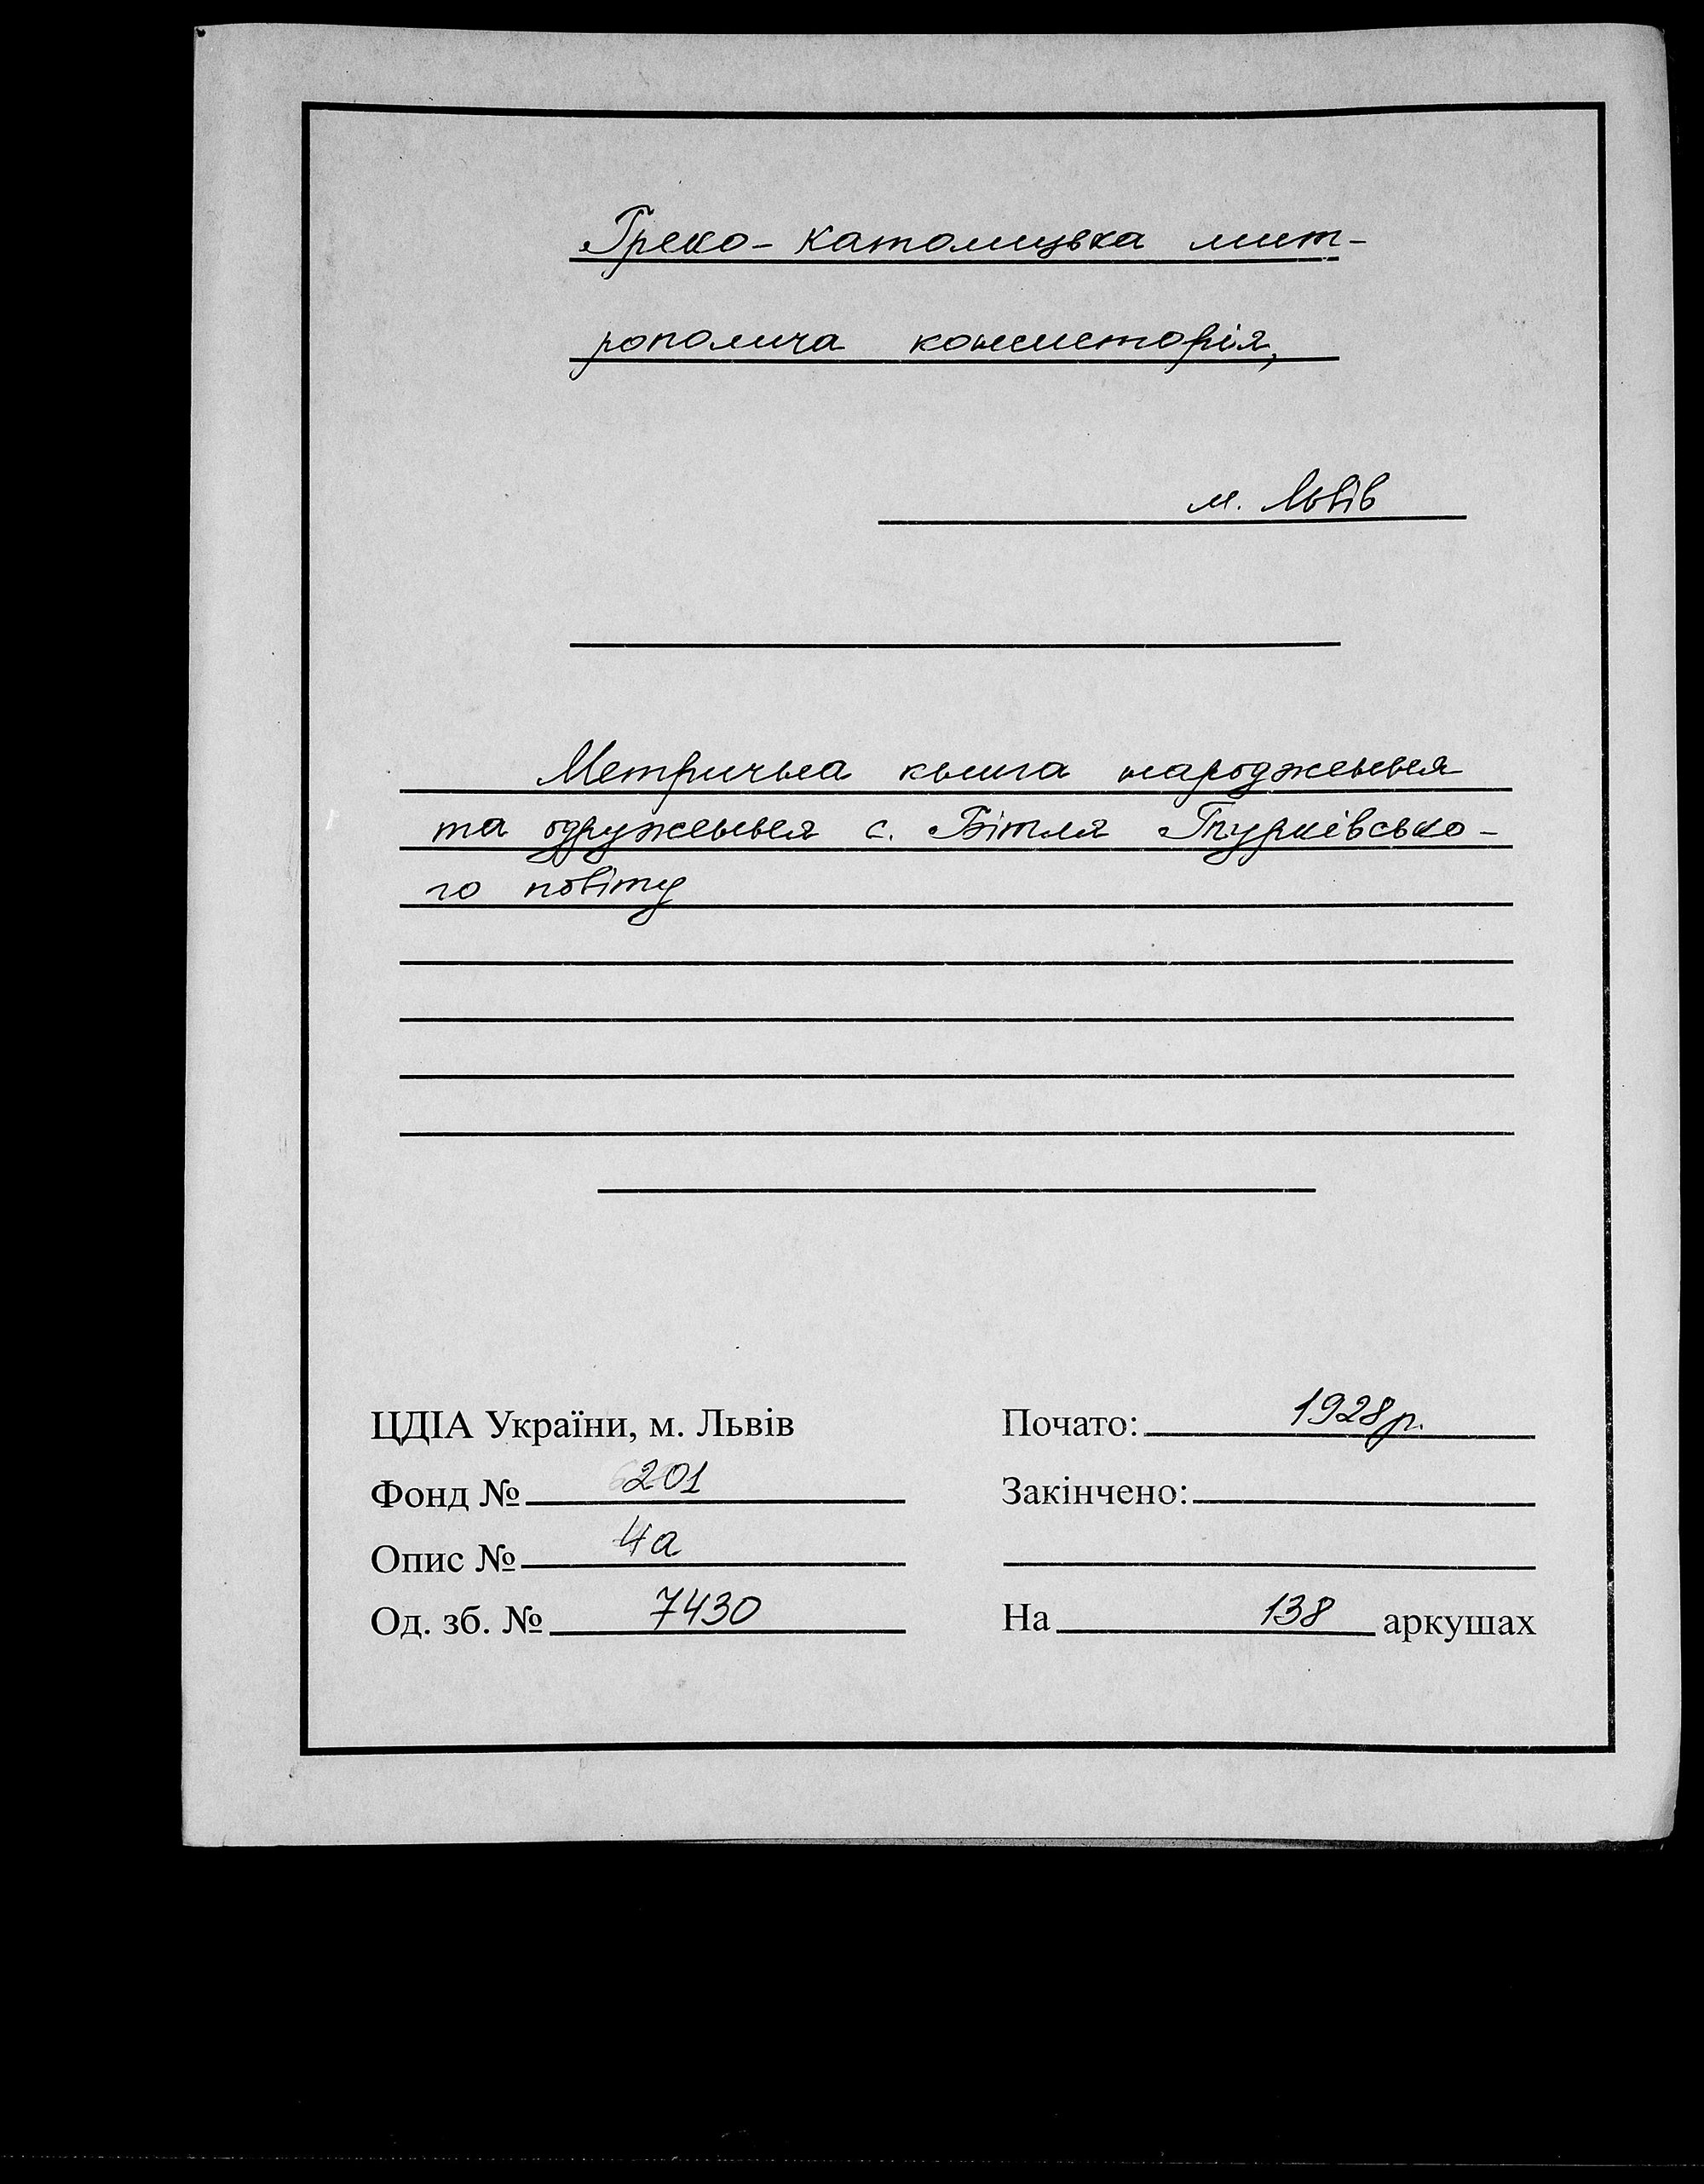 Греко-католицька мит-
рополича консисторія,
м. Львів
Метрична книга народження
та одруження с. Бітля Турківсько-
го повіту
ЦДІА України, м. Львів
Фонд № 201
Опис № 4а
Од. зб. № 7430
Почато: 1928р.
Закінчено:
На 138 аркушах